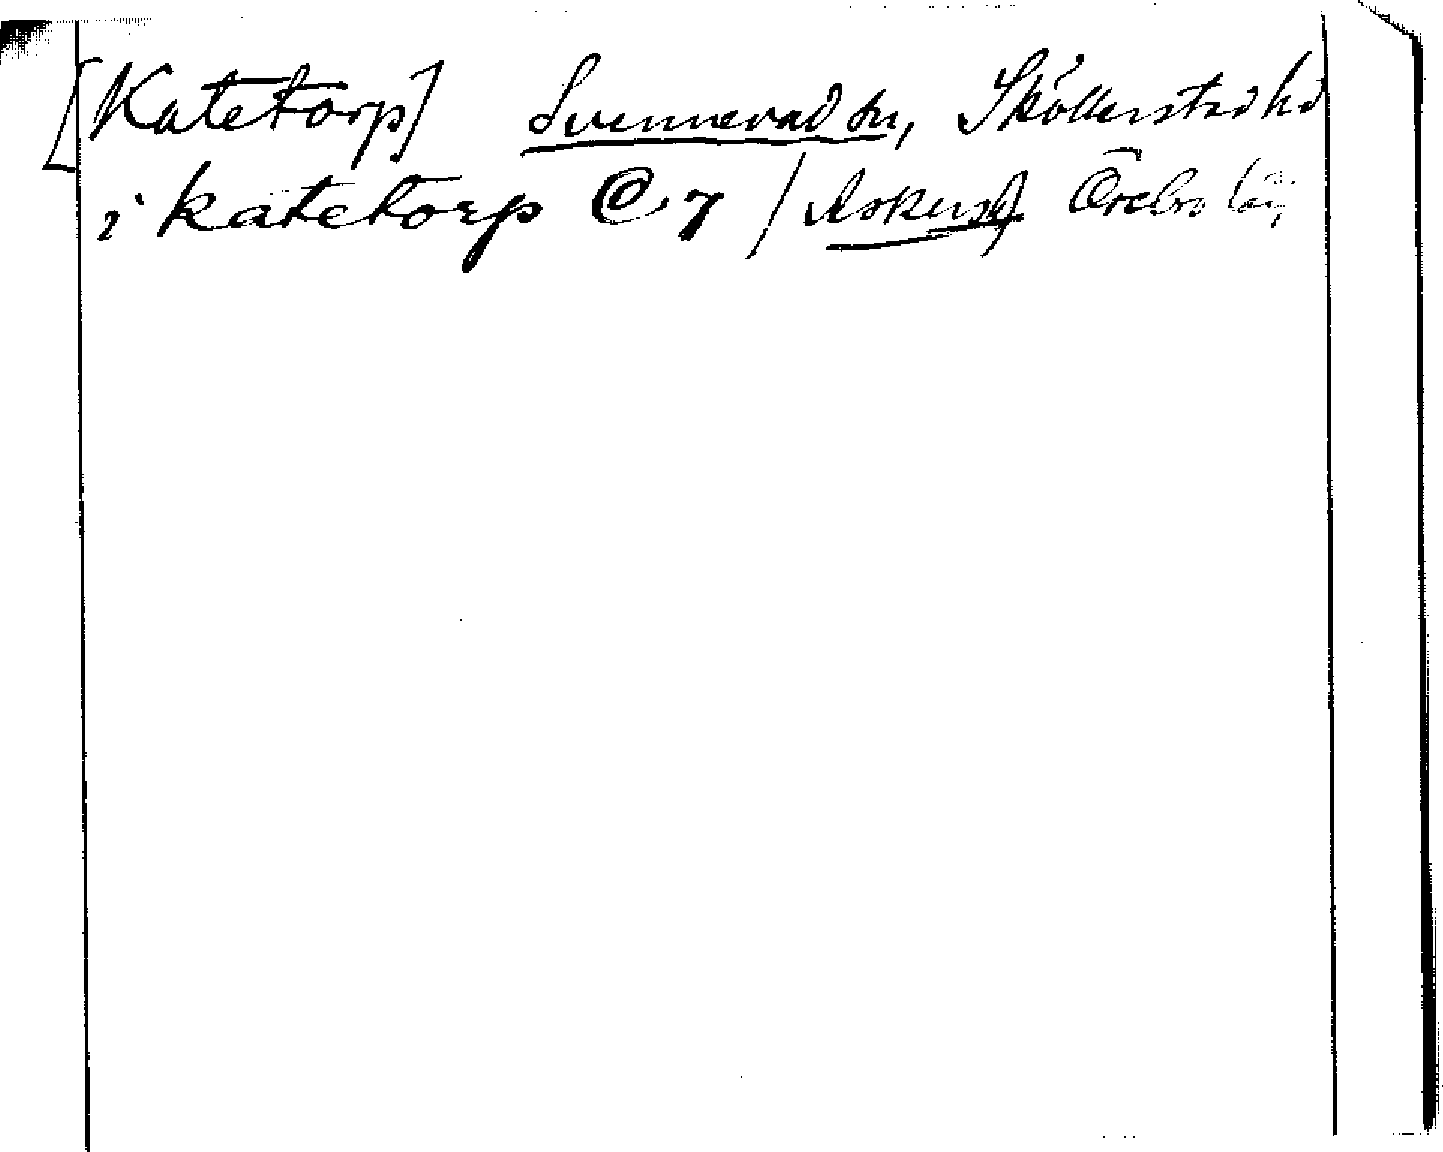 [Katetorp] Svennevad sn, Sköllerstad hd
i katetorp @ 7 / Askers hd Örebro län